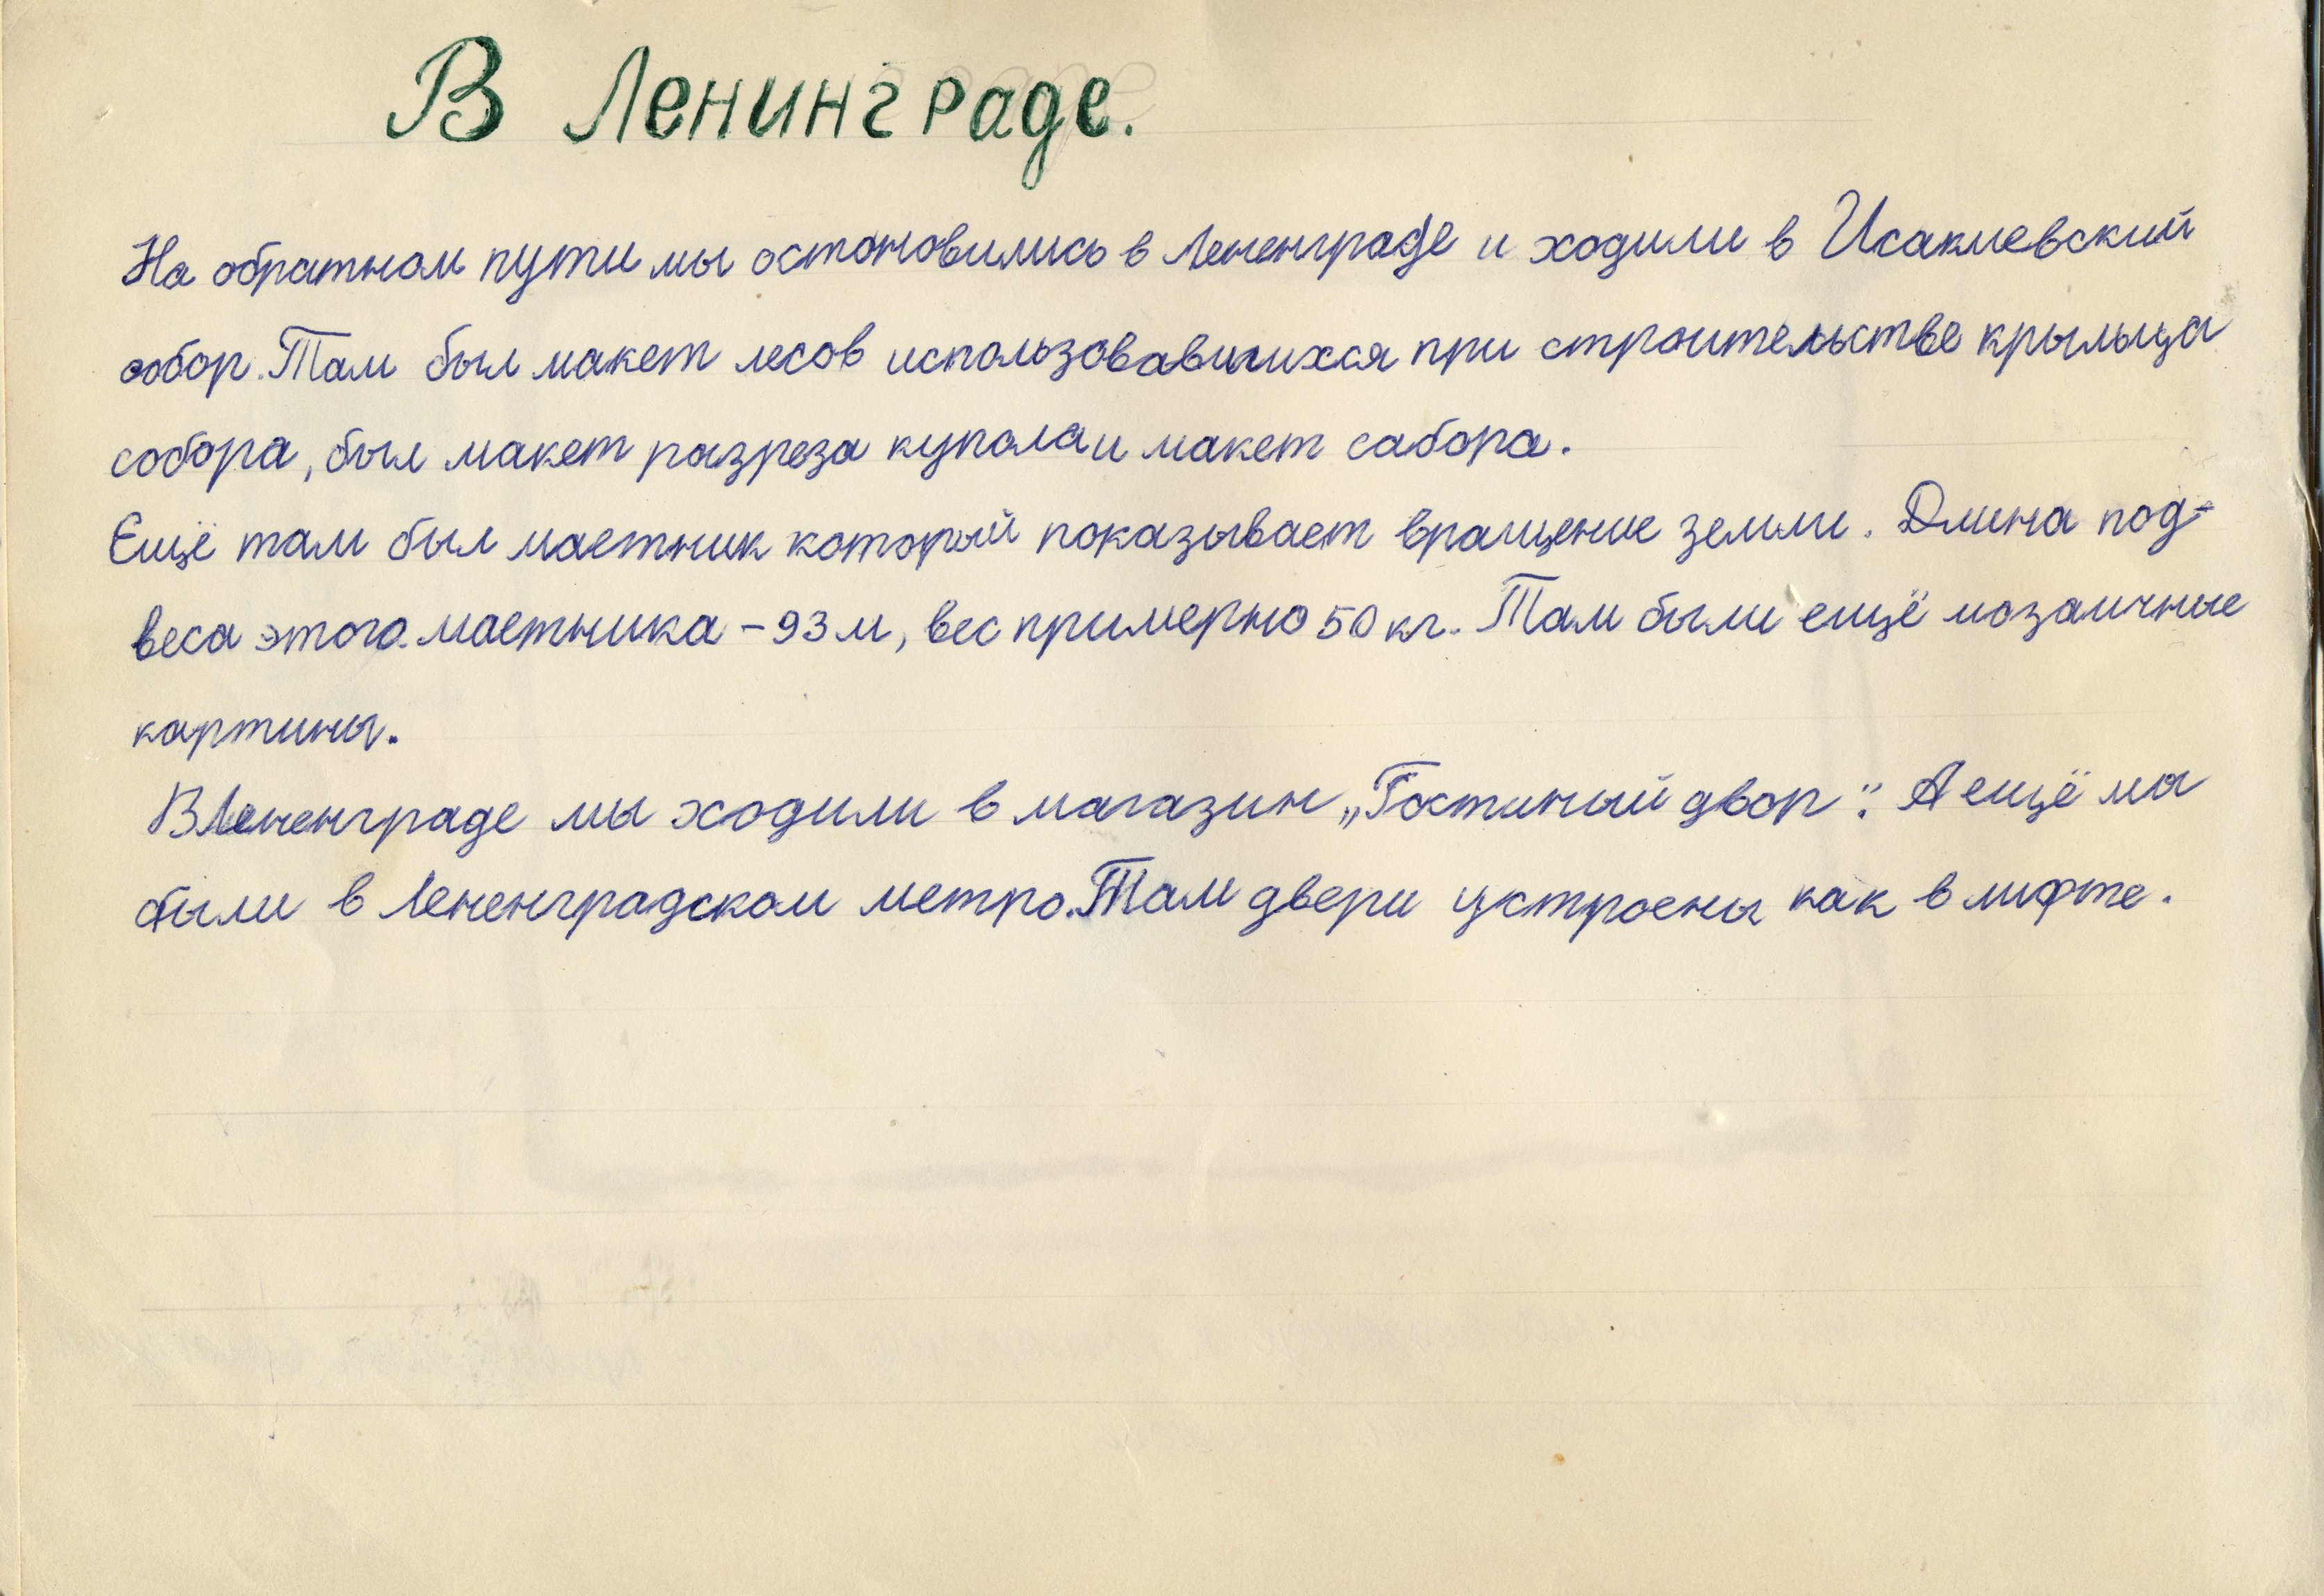 В Ленинграде.
На обратном пути мы остоновились в Лененграде и ходили в Исакиевский
собор. Там был макет лесов использовавшихся при строительстве крыльца
собора, был макет разреза купола и макет сабора.
Ещё там был маетник который показывает вращение земли. Длина под-
веса этого маетника – 93 м, вес примерно 50 кг. Там были ещё мозаичные
картины.
В Лененграде мы ходили в магазин „Гостиный двор". А ещё мы
были в Лененградском метро. Там двери устроены как в лифте.